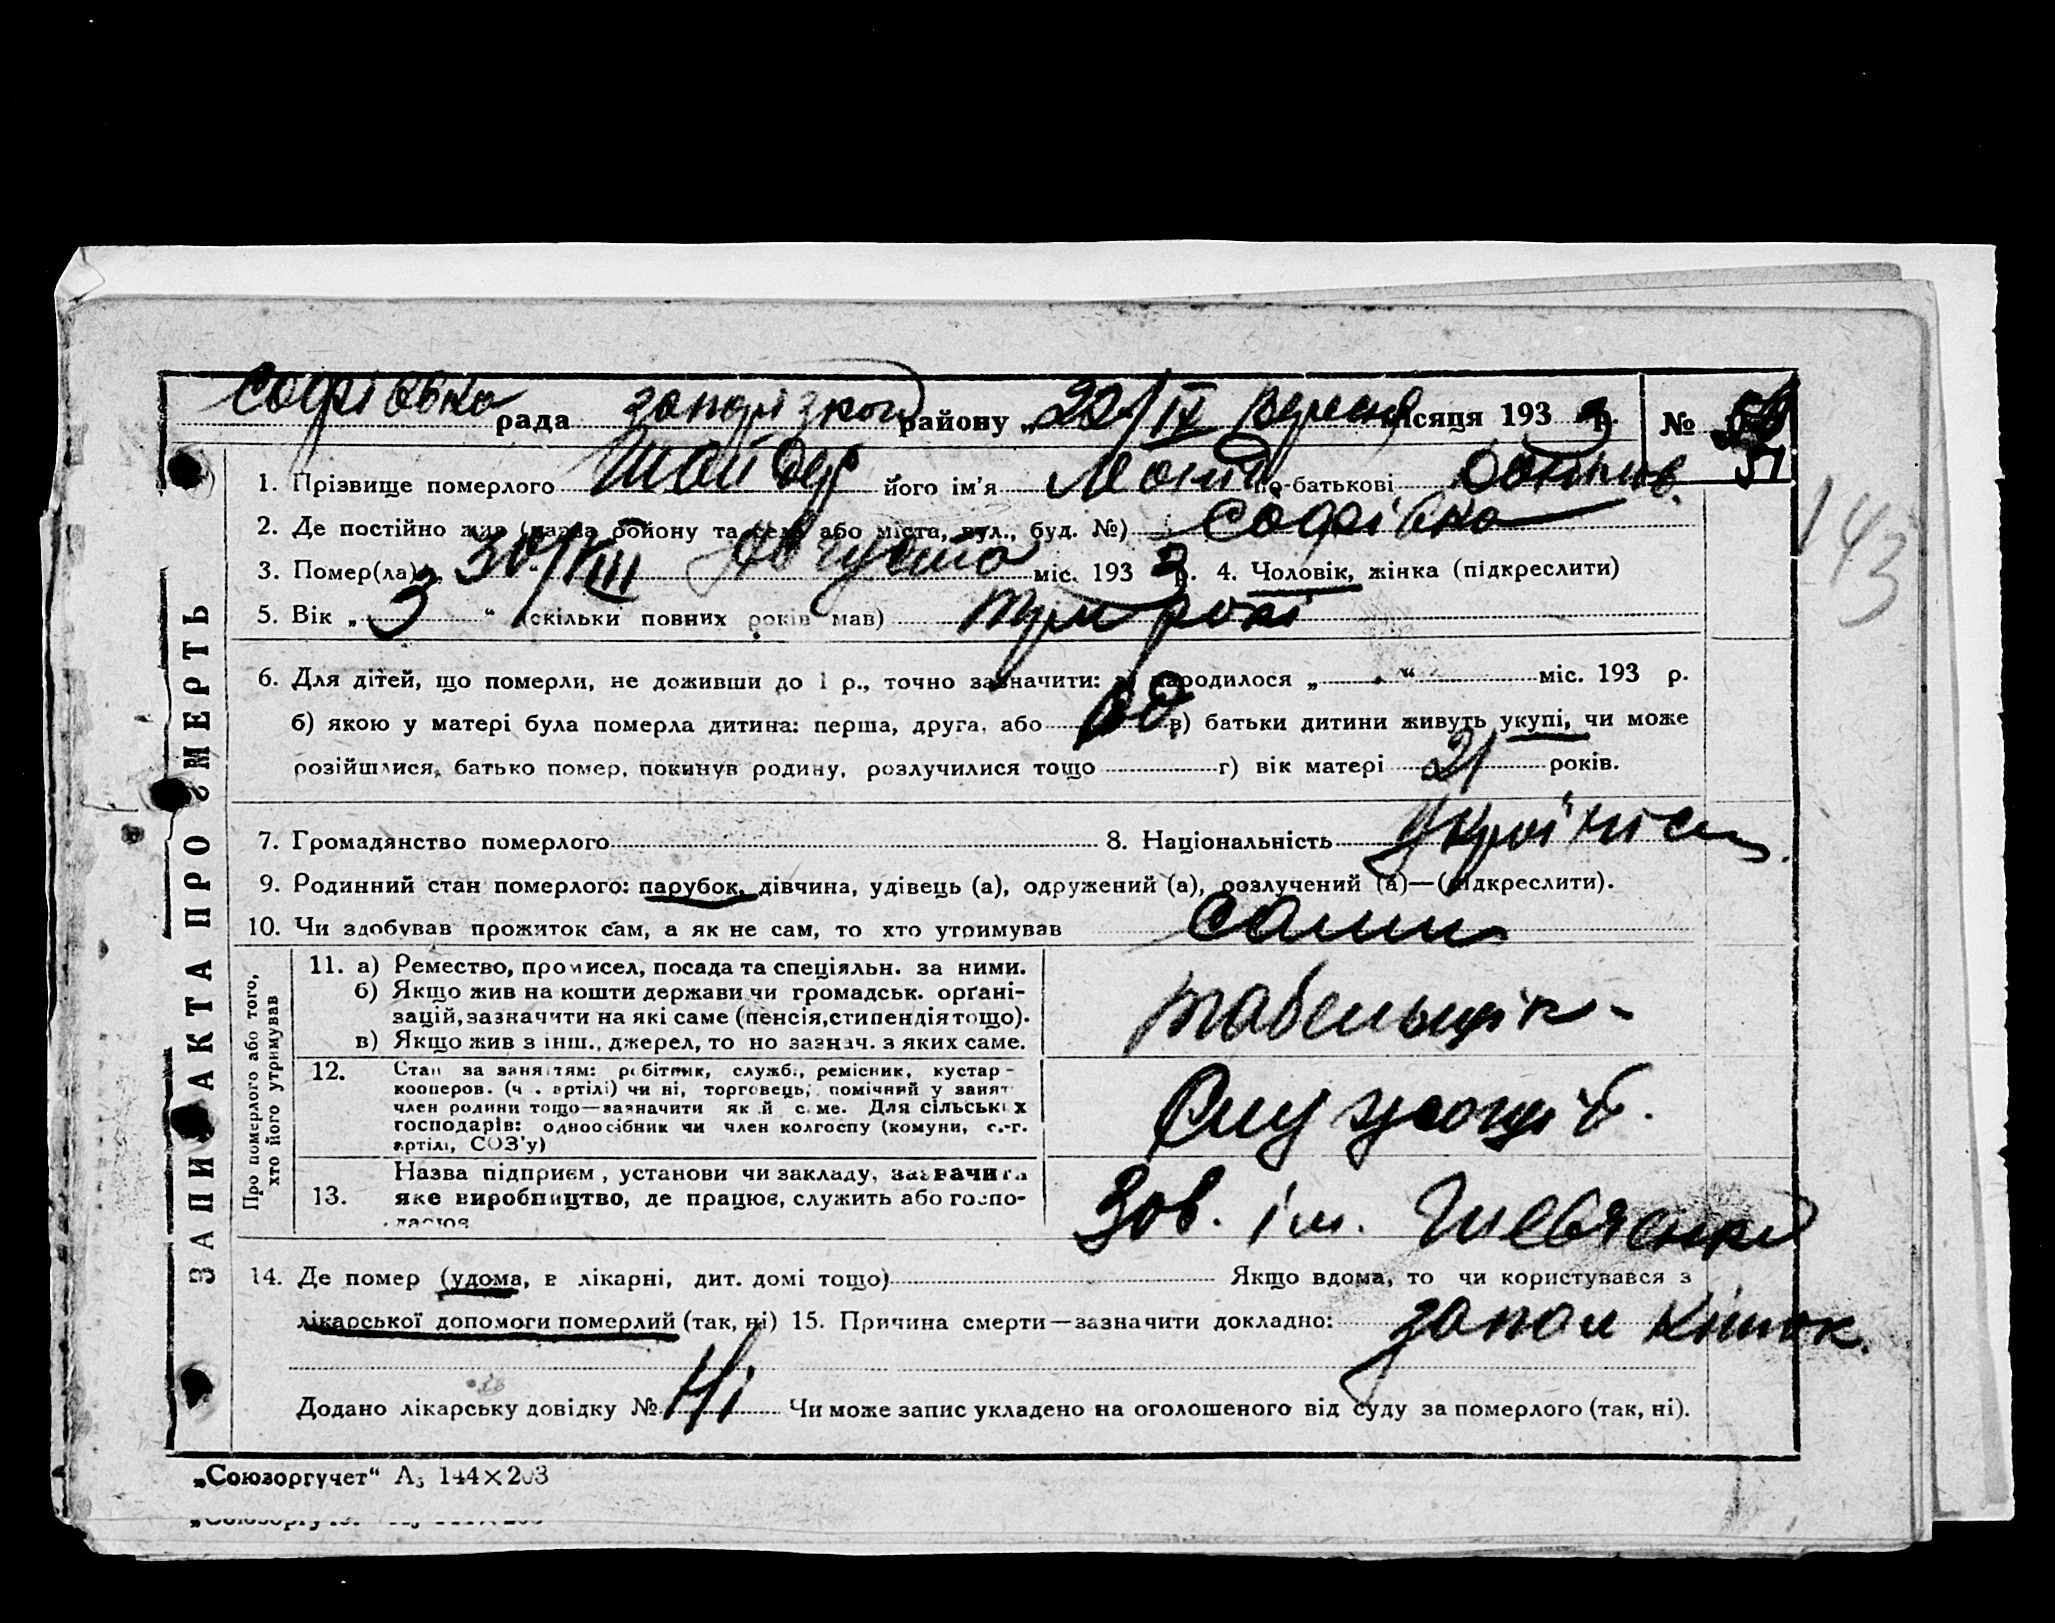 Софіївка рада запорізкого району „22/IX вересня місяця 1933 р. № 51
1. Прізвище померлого Шайдер його ім'я по-батькові
2. Де постійно жив (назва району та села або міста, вул., буд. №) Софіївка
3. Помер(ла) „30/VIII Августа міс. 1933 р. 4. Чоловік, жінка (підкреслити)
5. Вік „3“ скільки повних років мав) три рокі
6. Для дітей, що померли, не доживши до 1 р., точно зазначити: а) народилося „ “ міс. 193 р.
б) якою у матері була померла дитина: перша, друга, або в) батьки дитини живуть укупі, чи може
розійшлися, батько помер, покинув родину, розлучилися тощо г) вік матері 21 років.
7. Громадянство померлого 8. Національність Українец
9. Родинний стан померлого: парубок, дівчина, удівець (а), одружений (а), розлучений (а)—(підкреслити).
10. Чи здобував прожиток сам, а як не сам, то хто утримував
11. а) Ремество, промисел, посада та спеціяльн. за ними.
б) Якщо жив на кошти держави чи громадськ. орґані-
зацій, зазначити на які саме (пенсія, стипендія тощо).
в) Якщо жив з інш., джерел, то но зазнач. з яких саме.
табельщік-
12. Стан за заняттям: робітник, службі, ремісник, кустар-
кооперов. (ч . артілі) чи ні, торговець, помічний у занят
член родини тощо—зазначити як й саме. Для сільських
господарів: одноосібник чи член колгоспу (комуни, с.-г.
артілі, СОЗ'у)
13. Назва підприєм , установи чи закладу, зазначити
яке виробництво, де працює, служить або госпо-
дарює
Зав. ім. Шевченка
14. Де помер (удома, в лікарні, дит. домі тощо) Якщо вдома, то чи користувався з
лікарської допомоги померлий (так, ні) 15. Причина смерти—зазначити докладно: запал кишок.
Додано лікарську довідку № Ні Чи може запис укладено на оголошеного від суду за померлого (так, ні).
ЗАПИС АКТА ПРО СМЕРТЬ
Про померлого або того,
хто його утримував
143
„Союзоргучет“ А5 144×203